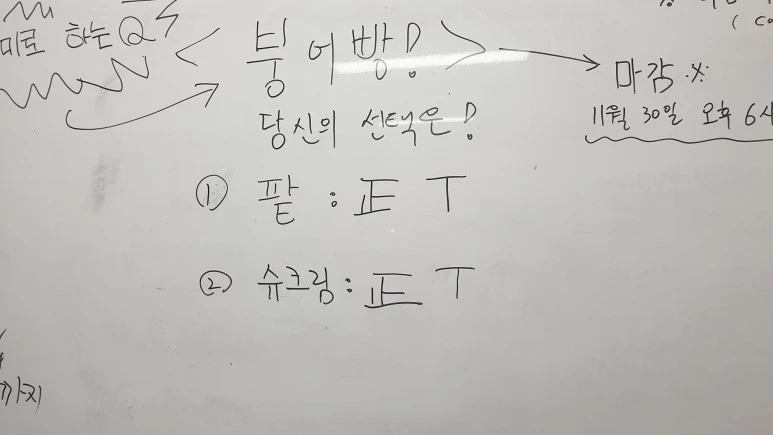 미로 하는 Q
< 붕어빵! >
마감 ※
11월 30일 오후 6시
당신의 선택은!
① 팥 : 正 T
② 슈크림 : 正 T
까지